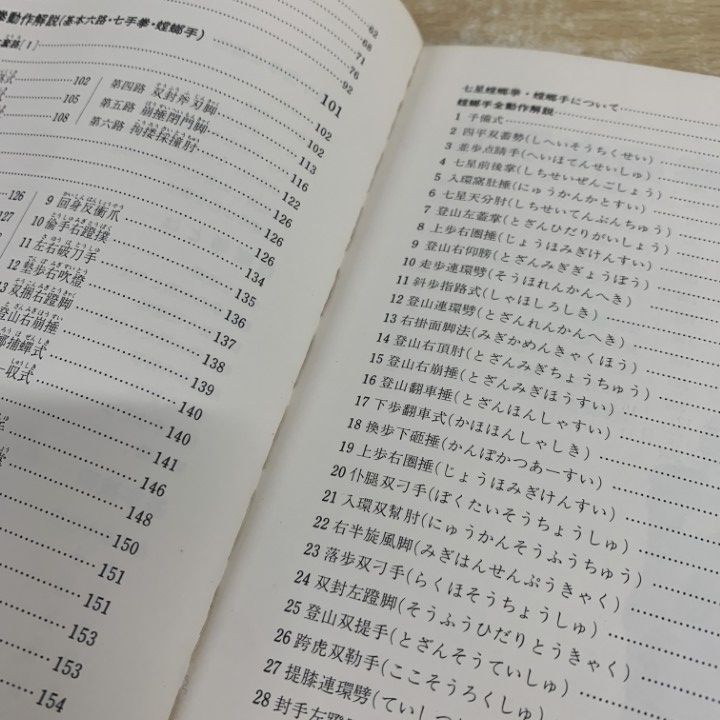 動作解説(基本六路・七手拳・螳螂手)
62
68
71
76
92
101
102
105
108
第四路 双封斧刃脚
102
第五路 崩捶閉門脚
102
第六路 拘摟採撞肘
113
116
122
126
126
127
9 回身反衝爪
126
10 偷手右蹬撲
134
11 左右破刀手
135
12 墊歩右吹燈
136
13 双捆右蹬脚
136
登山右崩捶
138
捕蟬式
139
収式
140
140
141
146
148
150
151
151
153
153
154
七星螳螂拳・螳螂手について
螳螂手全動作解説
1 予備式
2 四平双蓄勢(しへいそうちくせい)
3 並歩点睛手(へいほてんせいしゅ)
4 七星前後掌(しちせいぜんごしょう)
5 入環窩肚捶(にゅうかんかとすい)
6 七星天分肘(しちせいてんぶんちゅう)
7 登山左蓋掌(とざんひだりがいしょう)
8 上歩右圏捶(じょうほみぎけんすい)
9 登山右仰髈(とざんみぎぎょうぼう)
10 走歩連環劈(そうほれんかんへき)
11 斜歩指路式(しゃほしろしき)
12 登山連環劈(とざんれんかんへき)
13 右掛面脚法(みぎかめんきゃくほう)
14 登山右頂肘(とざんみぎちょうちゅう)
15 登山右崩捶(とざんみぎほうすい)
16 登山翻車捶(とざんほんしゃすい)
17 下歩翻車式(かほほんしゃしき)
18 換歩下砸捶(かんぽかつあーすい)
19 上歩右圏捶(じょうほみぎけんすい)
20 仆腿双刁手(ぼくたいそうちょうしゅ)
21 入環双幇肘(にゅうかんそうふうちゅう)
22 右半旋風脚(みぎはんせんぷうきゃく)
23 落歩双刁手(らくほそうちょうしゅ)
24 双封左蹬脚(そうふうひだりとうきゃく)
25 登山双提手(とざんそうていしゅ)
26 跨虎双勒手(ここそうろくしゅ)
27 提膝連環劈(ていしつ
28 封手左蹬